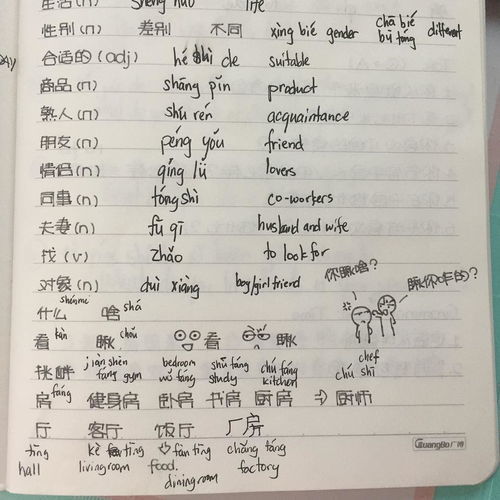 生活(n) shēng huó life
性别(n) 差别 不同 xìng bié gender chā bié bù tóng different
合适的(adj) hé shì de suitable
商品(n) shāng pǐn product
熟人(n) shú rén acquaintance
朋友(n) péng yǒu friend
情侣(n) qíng lǚ lovers
同事(n) tóng shì co-workers
夫妻(n) fū qī husband and wife
找(v) zhǎo to look for
对象(n) duì xiàng boy/girl friend
你瞅啥?
瞅你咋的?
什么 shénme 啥 shá
看 kàn 瞅 chǒu 看 瞅
挑衅 jiàn shēn fáng gym bedroom wò fáng shū fáng study chú fáng kitchen chef chú shī
房 fáng 健身房 卧房 书房 厨房 ⇒ 厨师
厅 客厅 饭厅 厂房
tīng kè tīng fàn tīng chǎng fáng
hall living room food. dining room factory
GuangBo 广博